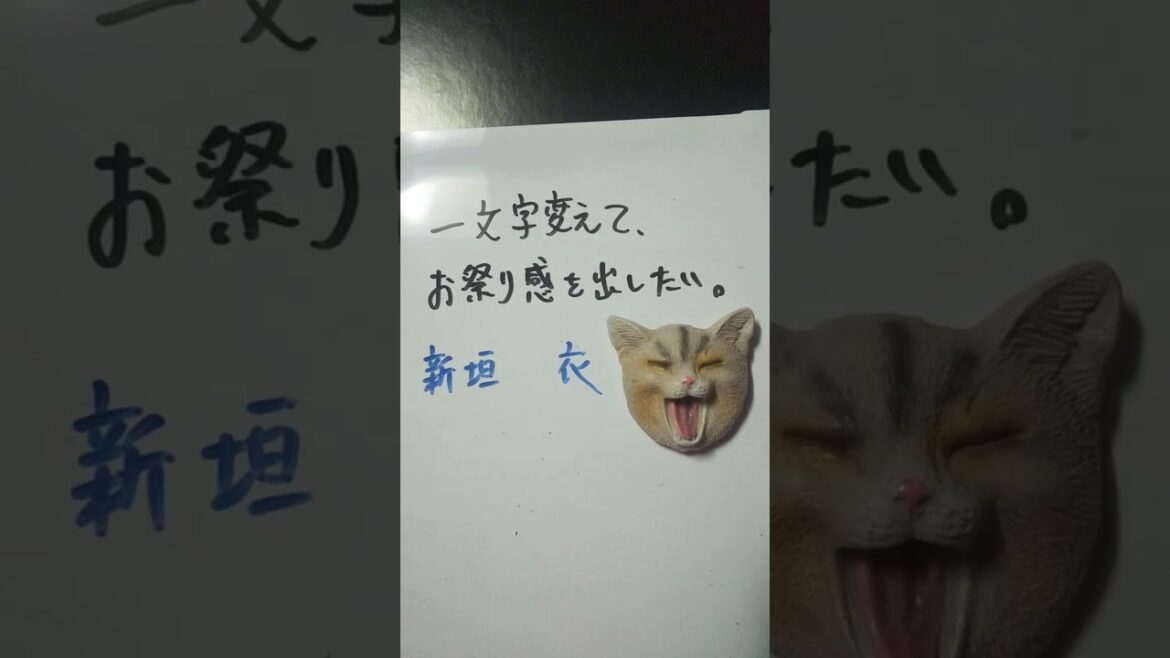 一文字変えて、
お祭り感を出したい。
新垣 衣